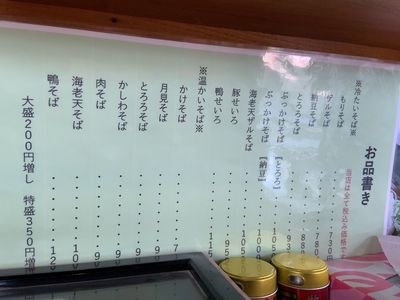 お品書き
当店は全て税込み価格です
※冷たいそば※
もりそば・・・・・・730
ザルそば・・・・・・780
納豆そば・・・・・・880
とろろそば・・・・・・93
ぶっかけそば【とろろ】・・・100
ぶっかけそば【納豆】・・・105
海老天ザルそば・・・・・・105
豚せいろ・・・・・・95
鴨せいろ・・・・・・115
※温かいそば※
かけそば・・・・・・7
月見そば・・・・・・9
とろろそば・・・・・・9
かしわそば・・・・・・9
肉そば・・・・・・9
海老天そば・・・・・・10
鴨そば・・・・・・12
大盛200円増し 特盛350円増